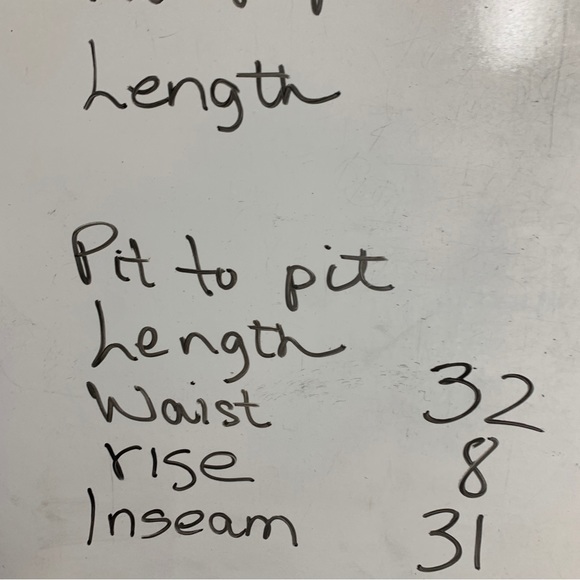 Length
Pit to pit
Length
Waist 32
rise 8
Inseam 31